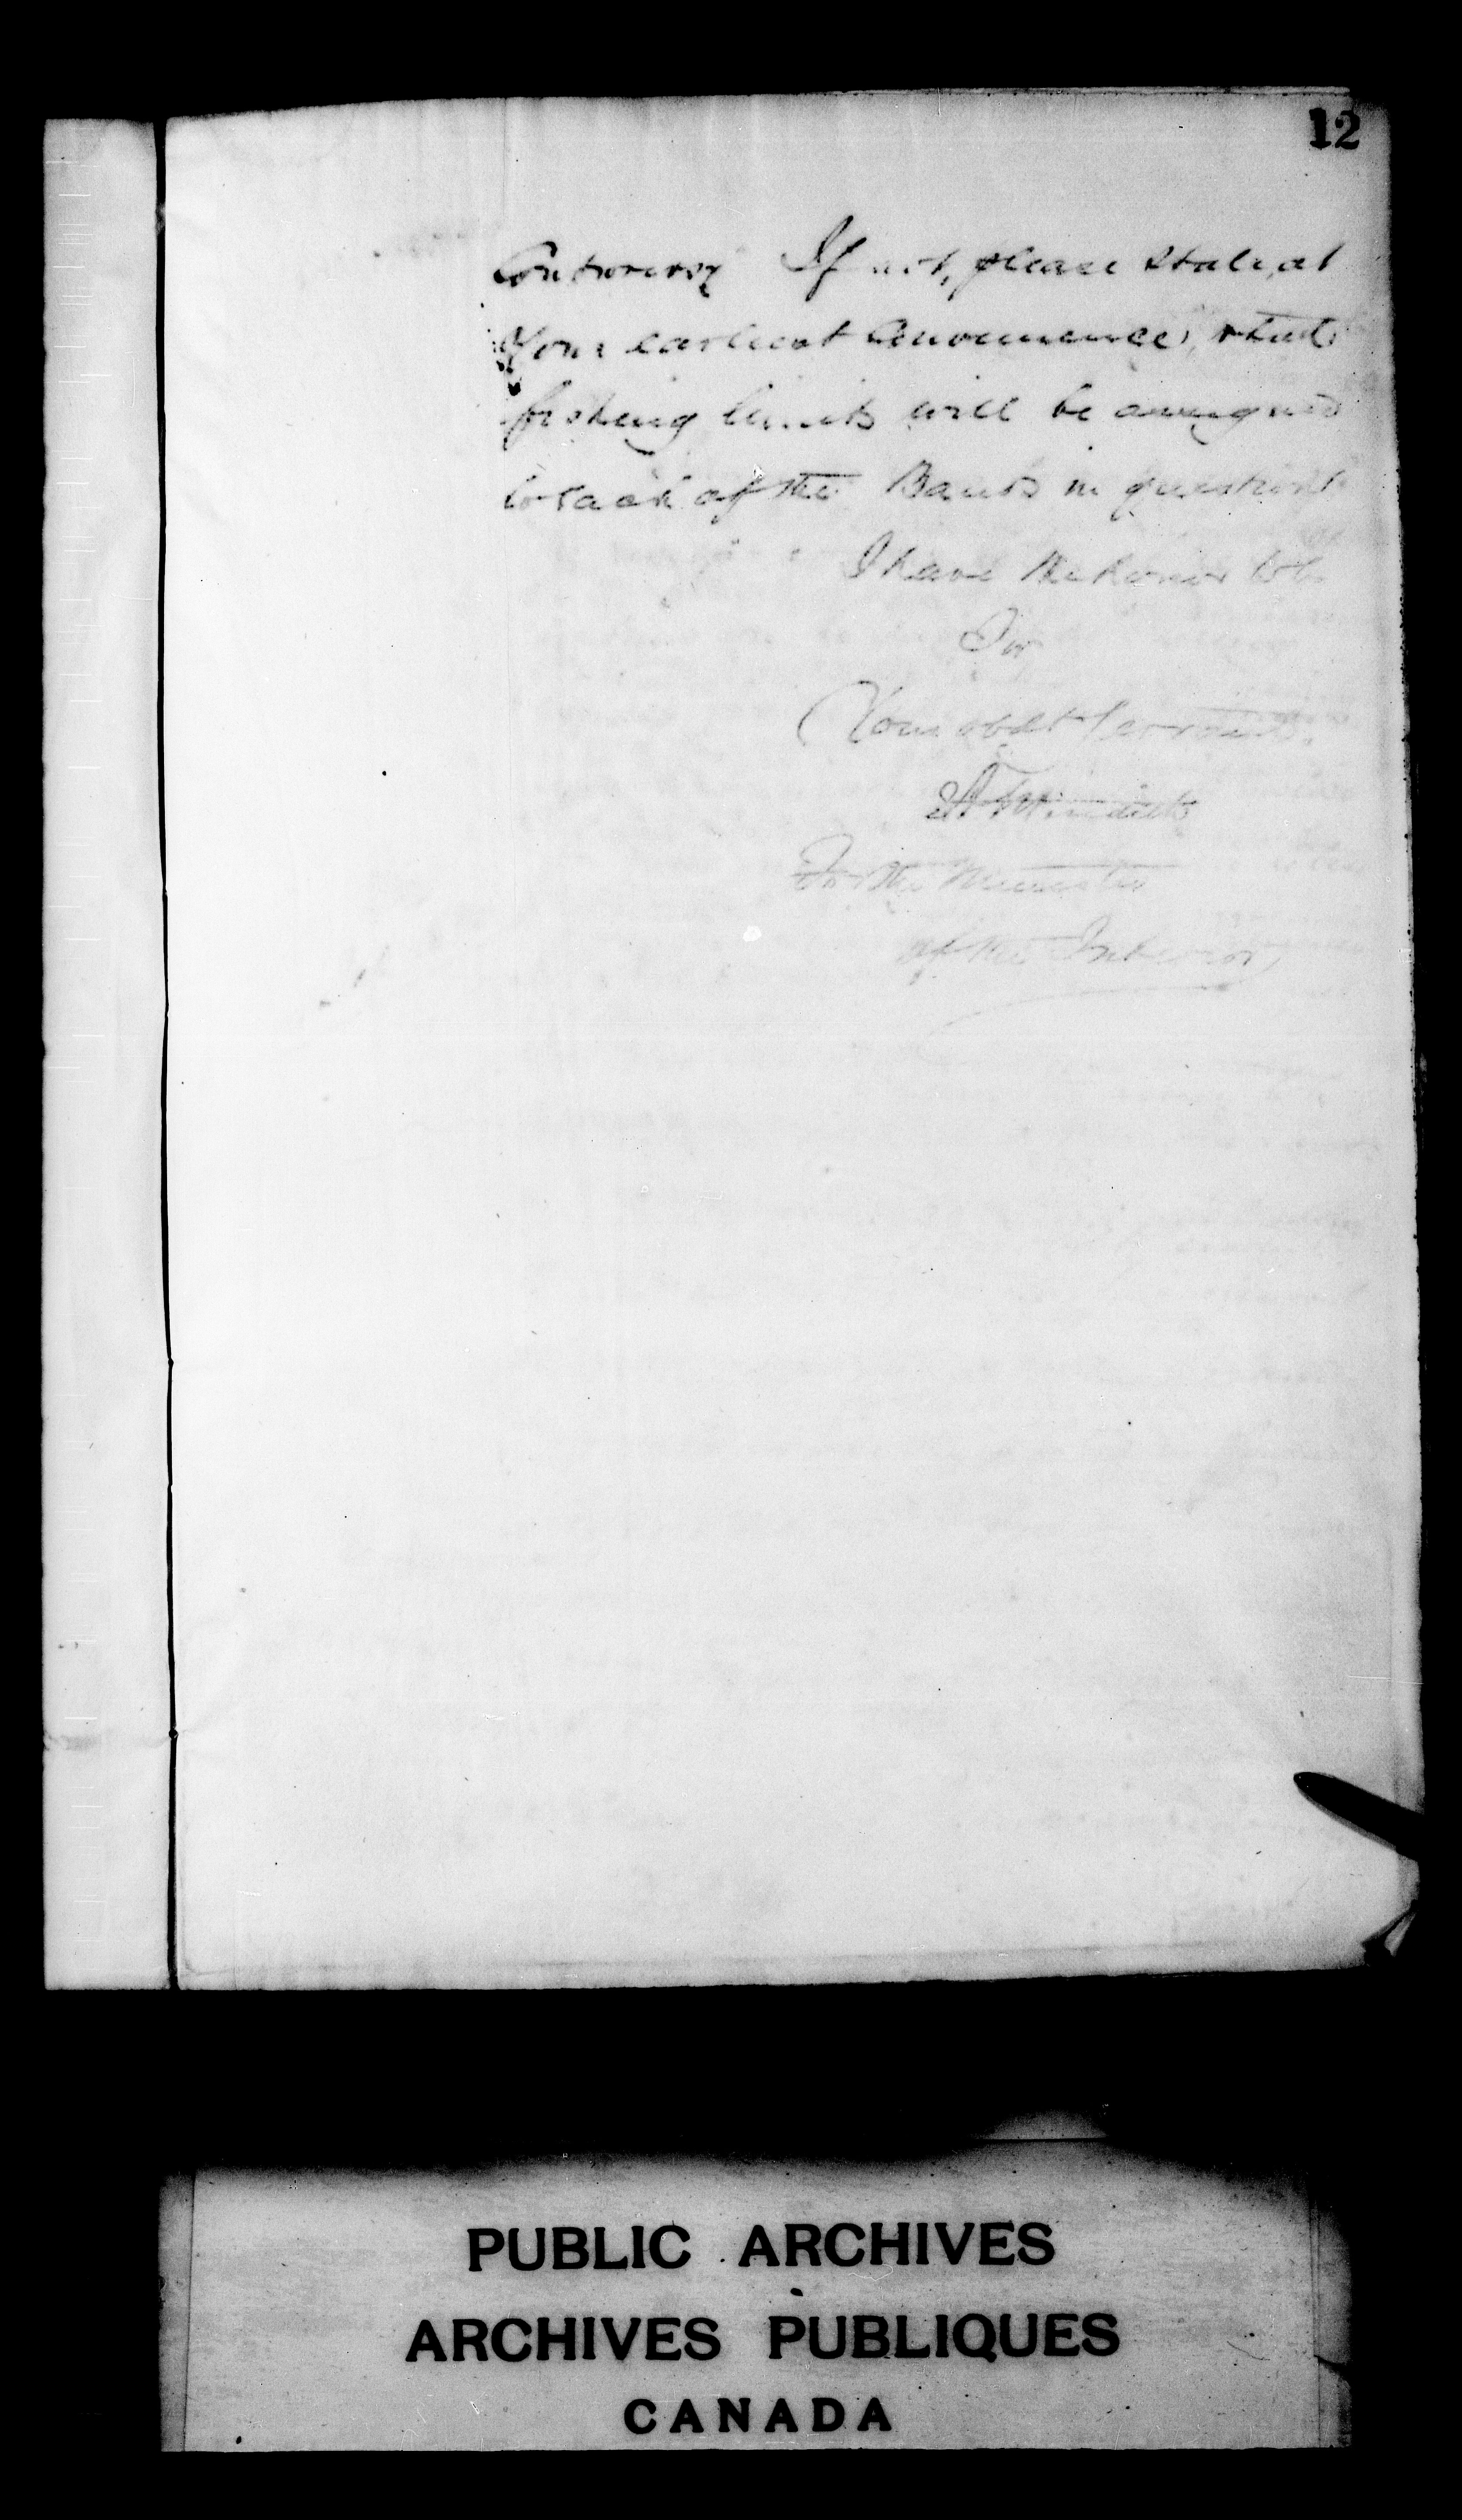 12
Controversy If not, please state, at
Your earliest convenience, what
fishing limits will be assigned
to each of the Bands in question
I have the honor to be
Sir
Your obdt Servant
For the Minister
of the Interior
PUBLIC ARCHIVES
ARCHIVES PUBLIQUES
CANADA